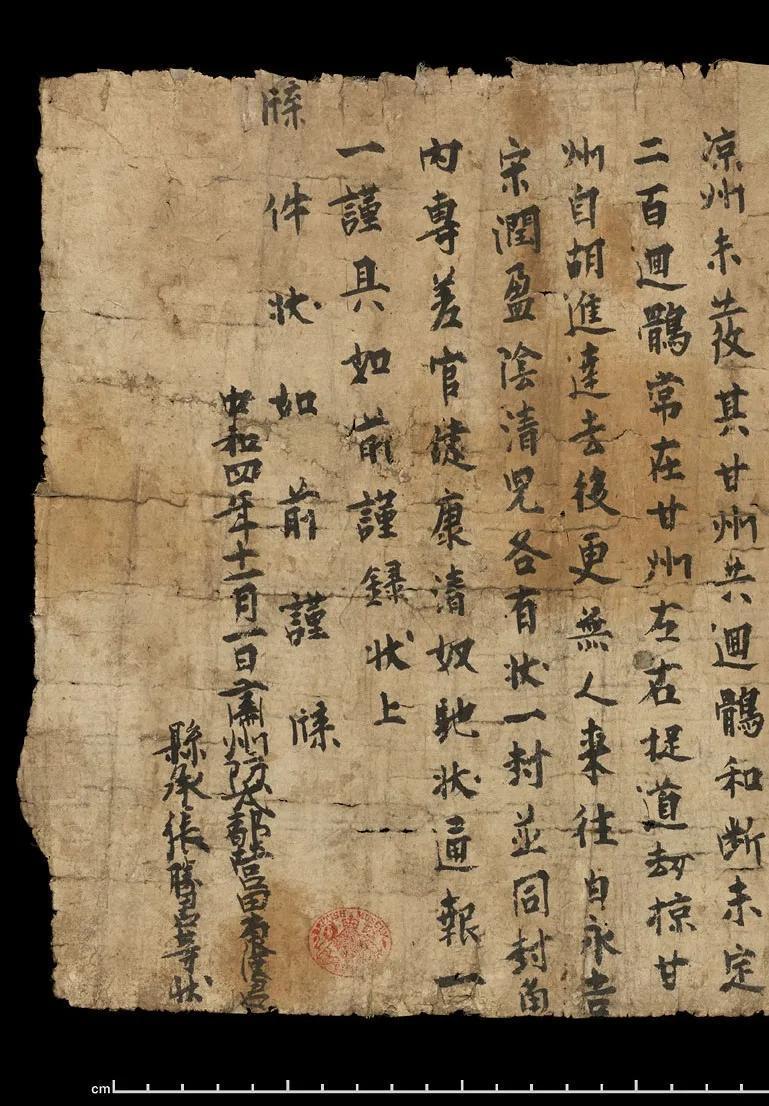 涼州未發其甘州共迴鶻和断未定
二百迴鶻常在甘州左右捉道劫掠甘
州自胡進達去後更無人來往白永吉
宋潤盈陰清兒各有狀一封並同封角
內專差官健康清奴馳狀通報一
一謹具如前謹録狀上
牒件狀如前謹牒
中和四年十一月一日肅州防戍都營田索漢君
縣丞張勝君等狀
BRITISH MUSEUM
cm